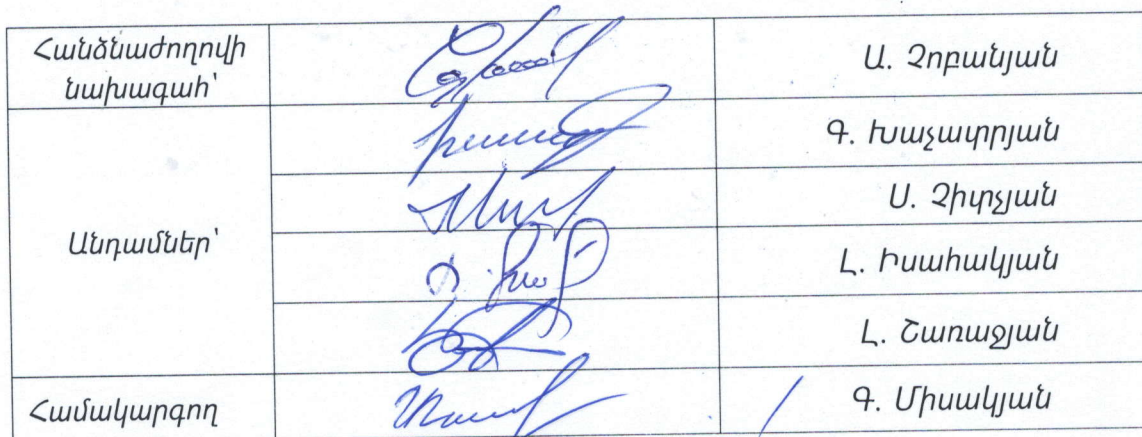 Հանձնաժողովի
նախագահ՝
Ա. Չոբանյան
Գ. Խաչատրյան
Ս. Չիտչյան
Անդամներ՝
Լ. Իսահակյան
Լ. Շառաջյան
Համակարգող
Գ. Միսակյան